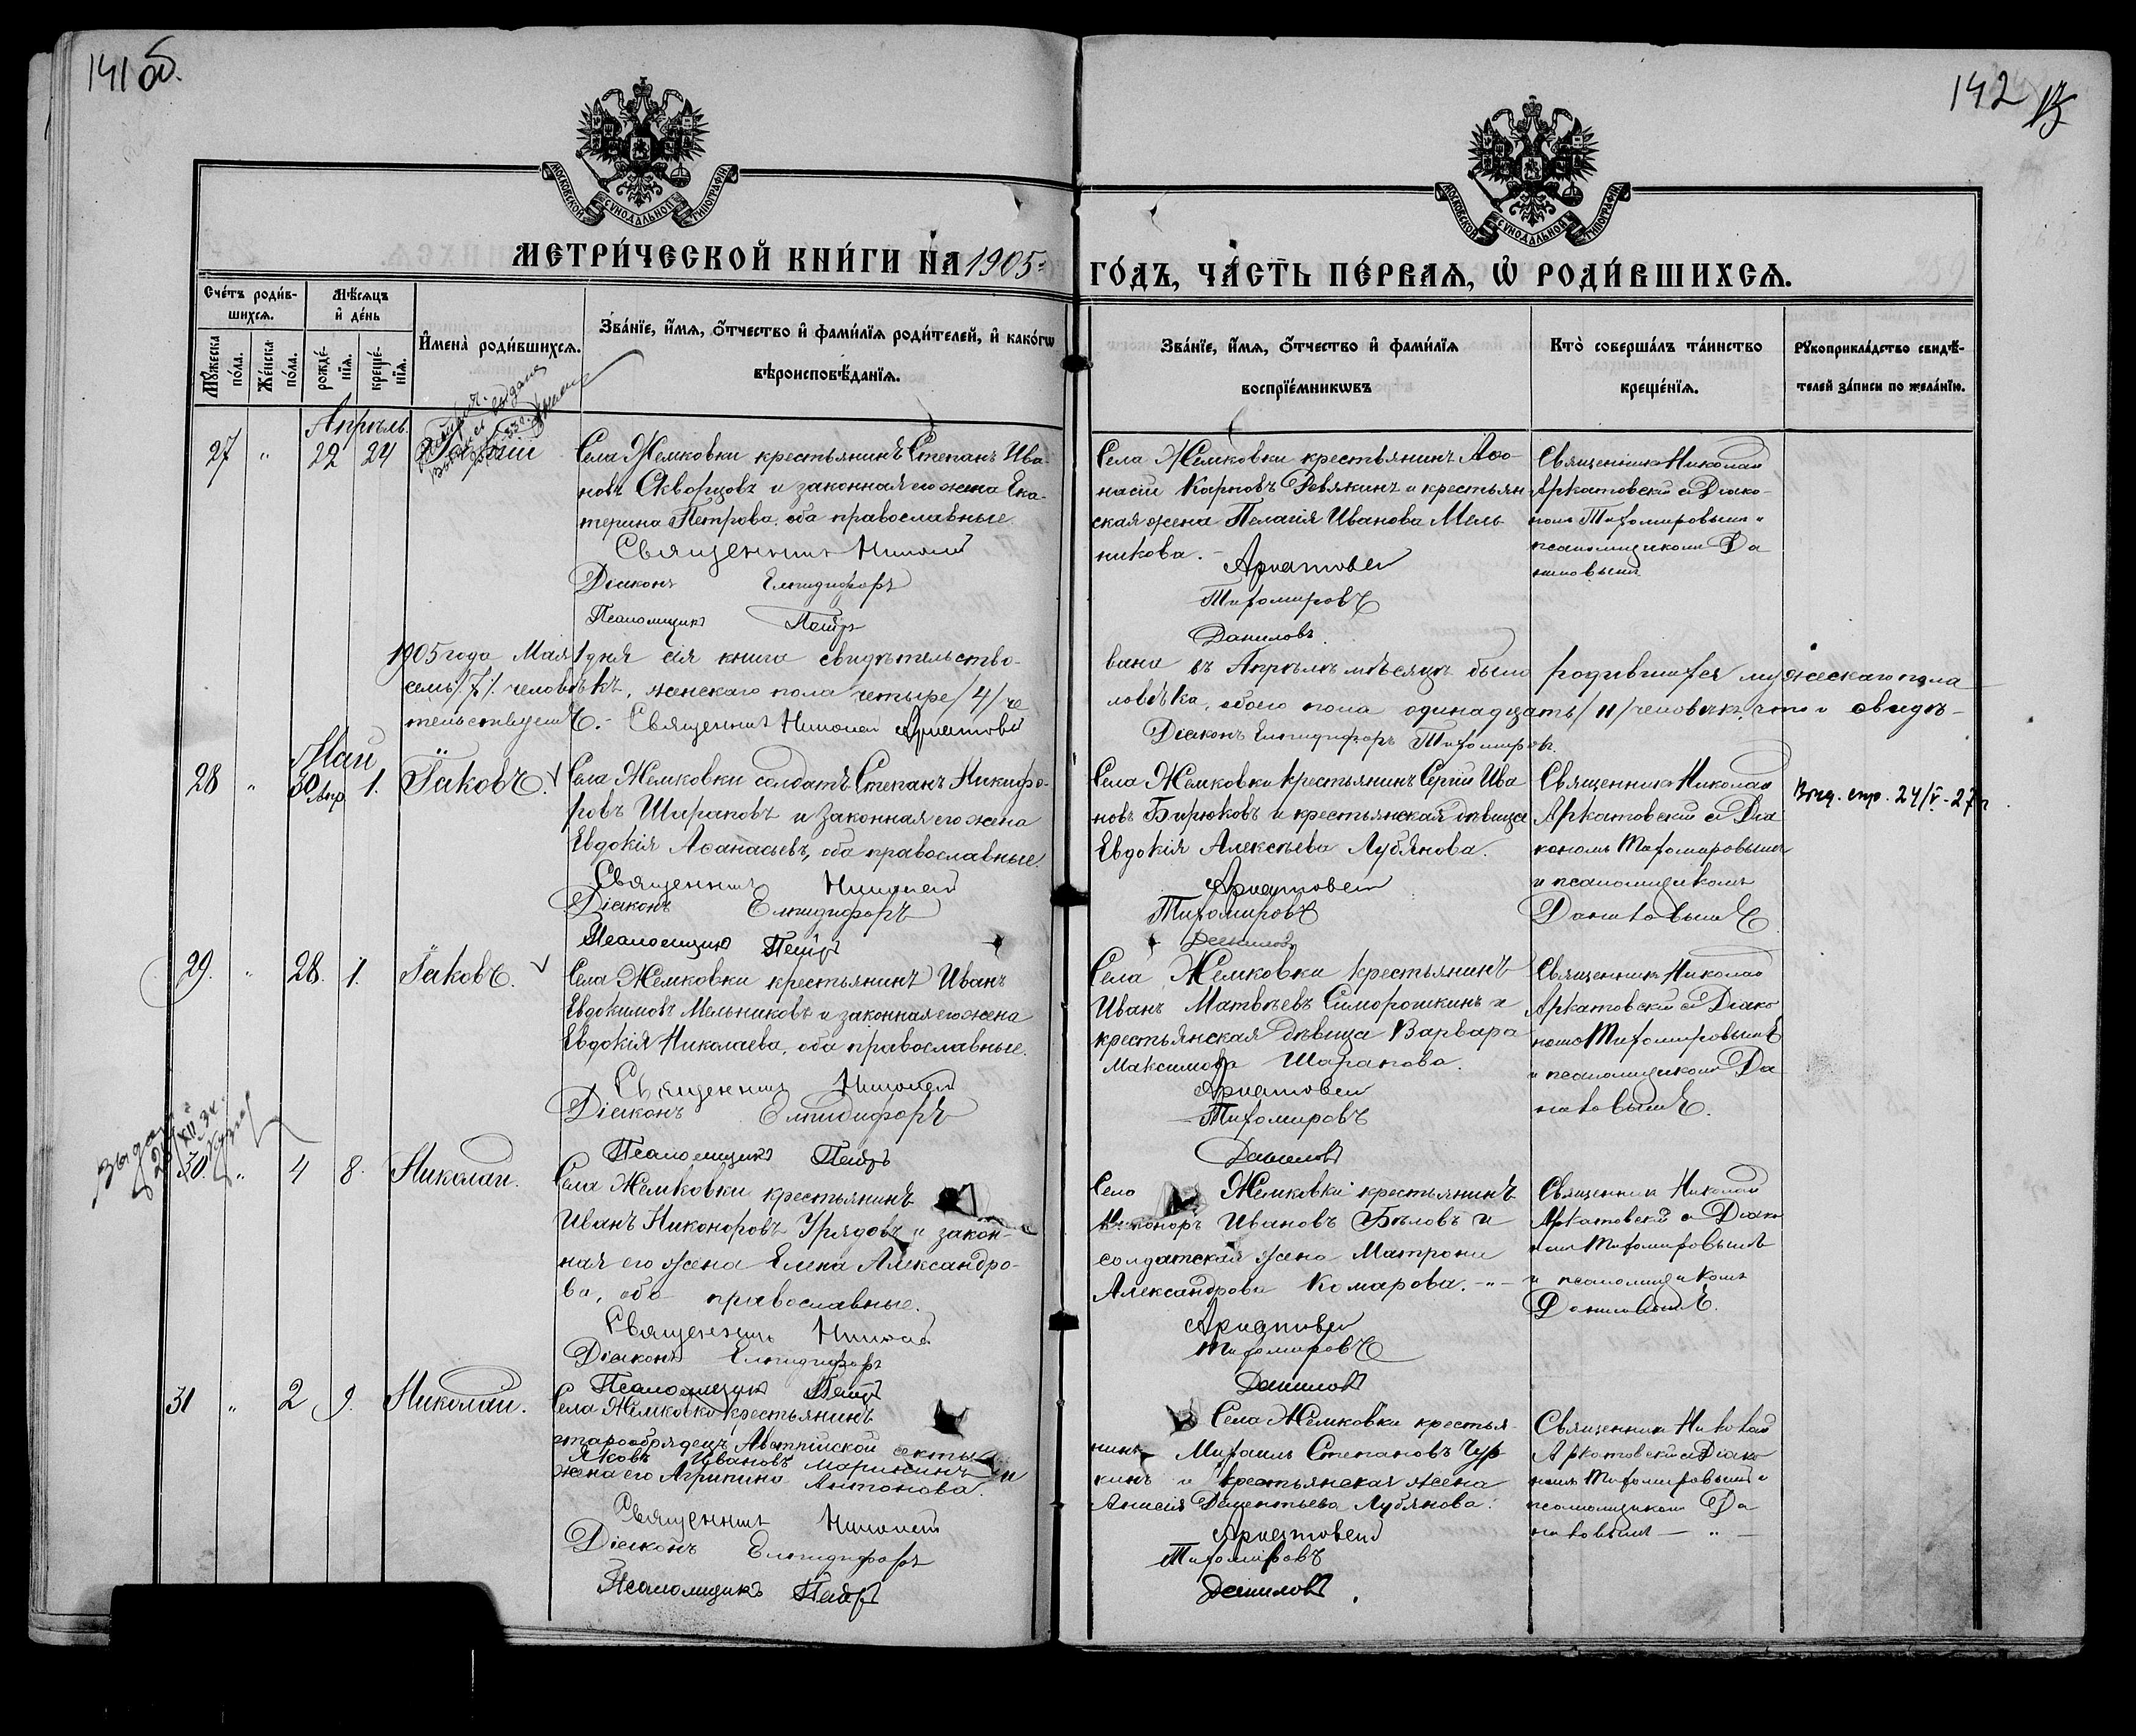 141 об.
142
МОСКОВСКОЙ СѴНОДАЛЬНОЙ ТИПОГРАФІИ
МОСКОВСКОЙ СѴНОДАЛЬНОЙ ТИПОГРАФІИ
МЕТРИ́ЧЕСКОЙ КНИ́ГИ НА 1905
ГО́ДЪ, ЧА́СТЬ ПЕ́РВАѦ, Ѡ҆ РОДИ́ВШИХСѦ.
Сче́тъ роди́в-
шихсѧ.
Мꙋ́жеска по́ла.
Же́нска по́ла.
Мѣ́сѧцъ
и҆ де́нь
рожде́-
нїѧ.
креще́-
нїѧ.
И҆мена̀ роди́вшихсѧ.
Зва́нїе, и҆́мѧ, ѻ҆́тчество и҆ фами́лїѧ роди́телей, и҆ како́гѡ
вѣроисповѣ́данїѧ.
Зва́нїе, и҆́мѧ, ѻ҆́тчество и҆ фами́лїѧ
воспрїе́мникѡвъ
Кто̀ соверша́лъ та́инство
креще́нїѧ.
Рꙋкоприкла́дство свидѣ́-
телей за́писи по жела́нїю.
Апрѣль
27 " 22 24
Села Жемковки крестьянинъ Степанъ Ива-
новъ Скворцовъ и законная его жена Ека-
терина Петрова, оба православные
Священникъ Николай
Діаконъ Елпидифоръ
Псаломщикъ Петръ
Села Жемковки крестьянинъ Аѳа-
насій Карповъ Ревякинъ и крестьян-
ская жена Пелагія Иванова Мель
никова.
Аркатовскій
Тихомировъ
Даниловъ.
Священникъ Николай
Аркатовскій съ Діако-
номъ Тихомировымъ и
псаломщикомъ Да
ниловымъ
1905 года Мая 1 дня сія книга свидѣтельство-
вана въ Апрѣлѣ мѣсяцѣ было родившихся мужескаго пола
семь /7/ человѣкъ, женскаго пола четыре /4/ че
ловѣка, обоего пола одинадцать /11/ человѣкъ, что и свидѣ-
тельствуемъ. - Священникъ Николай Аркатовскій
Діаконъ Елпидифоръ Тихомировъ.
Май
28 " 30 Апр. 1. Іаковъ.
Села Жемковки солдатъ Степанъ Никифо-
ровъ Шараповъ и законная его жена
Евдокія Аѳанасьевъ, оба православные.
Священникъ Николай
Діаконъ Елпидифоръ
Псаломщикъ Петръ
Села Жемковки крестьянинъ Сергій Ива
новъ Бирюковъ и крестьянская дѣвица
Евдокія Алексѣева Лубянова.
Аркатовскій
Тихомировъ
Даниловъ
Священникъ Николай
Аркатовскій съ Діа
кономъ Тихомировымъ
и псаломщикомъ
Даниловымъ
24/V-27 г.
29. " 28. 1. Іаковъ.
Села Жемковки крестьянинъ Иванъ
Евдокимовъ Мельниковъ и законная его жена
Евдокія Николаева, оба православные.
Священникъ Николай
Діаконъ Елпидифоръ
Псаломщикъ Петръ
Села Жемковки крестьянинъ
Иванъ Матвѣевъ Симорошкинъ и
крестьянская дѣвица Варвара
Максимова Шарапова.
Аркатовскій
Тихомировъ
Даниловъ
Священникъ Николай
Аркатовскій съ Діако
номъ Тихомировымъ
и псаломщикомъ Да
ниловымъ.
30. " 4 8. Николай.
Села Жемковки крестьянинъ
Иванъ Никоноровъ Урядовъ и закон-
ная его жена Елена Александро-
ва, оба православные.
Священникъ Николай
Діаконъ Елпидифоръ
Псаломщикъ Петръ
Села Жемковки крестьянинъ
Никоноръ Ивановъ Бѣловъ и
солдатская жена Матрона
Александрова Комарова. - " -
Аркатовскій
Тихомировъ
Даниловъ
Священникъ Николай
Аркатовскій съ Діако
номъ Тихомировымъ
и псаломщикомъ
Даниловымъ.
31 " 2 9. Николай.
Села Жемковки крестьянинъ
старообрядецъ Австрійской секты
Яковъ Ивановъ Марининъ и
жена его Агрипина Антонова.
Священникъ Николай
Діаконъ Елпидифоръ
Псаломщикъ Петръ
Села Жемковки крестья-
нинъ Михаилъ Степановъ Чур
кинъ и крестьянская жена
Анисія Дементьева Лубянова.
Аркатовскій
Тихомировъ
Даниловъ
Священникъ Николай
Аркатовскій съ Діако
номъ Тихомировымъ и
псаломщикомъ Да
ниловымъ — " —